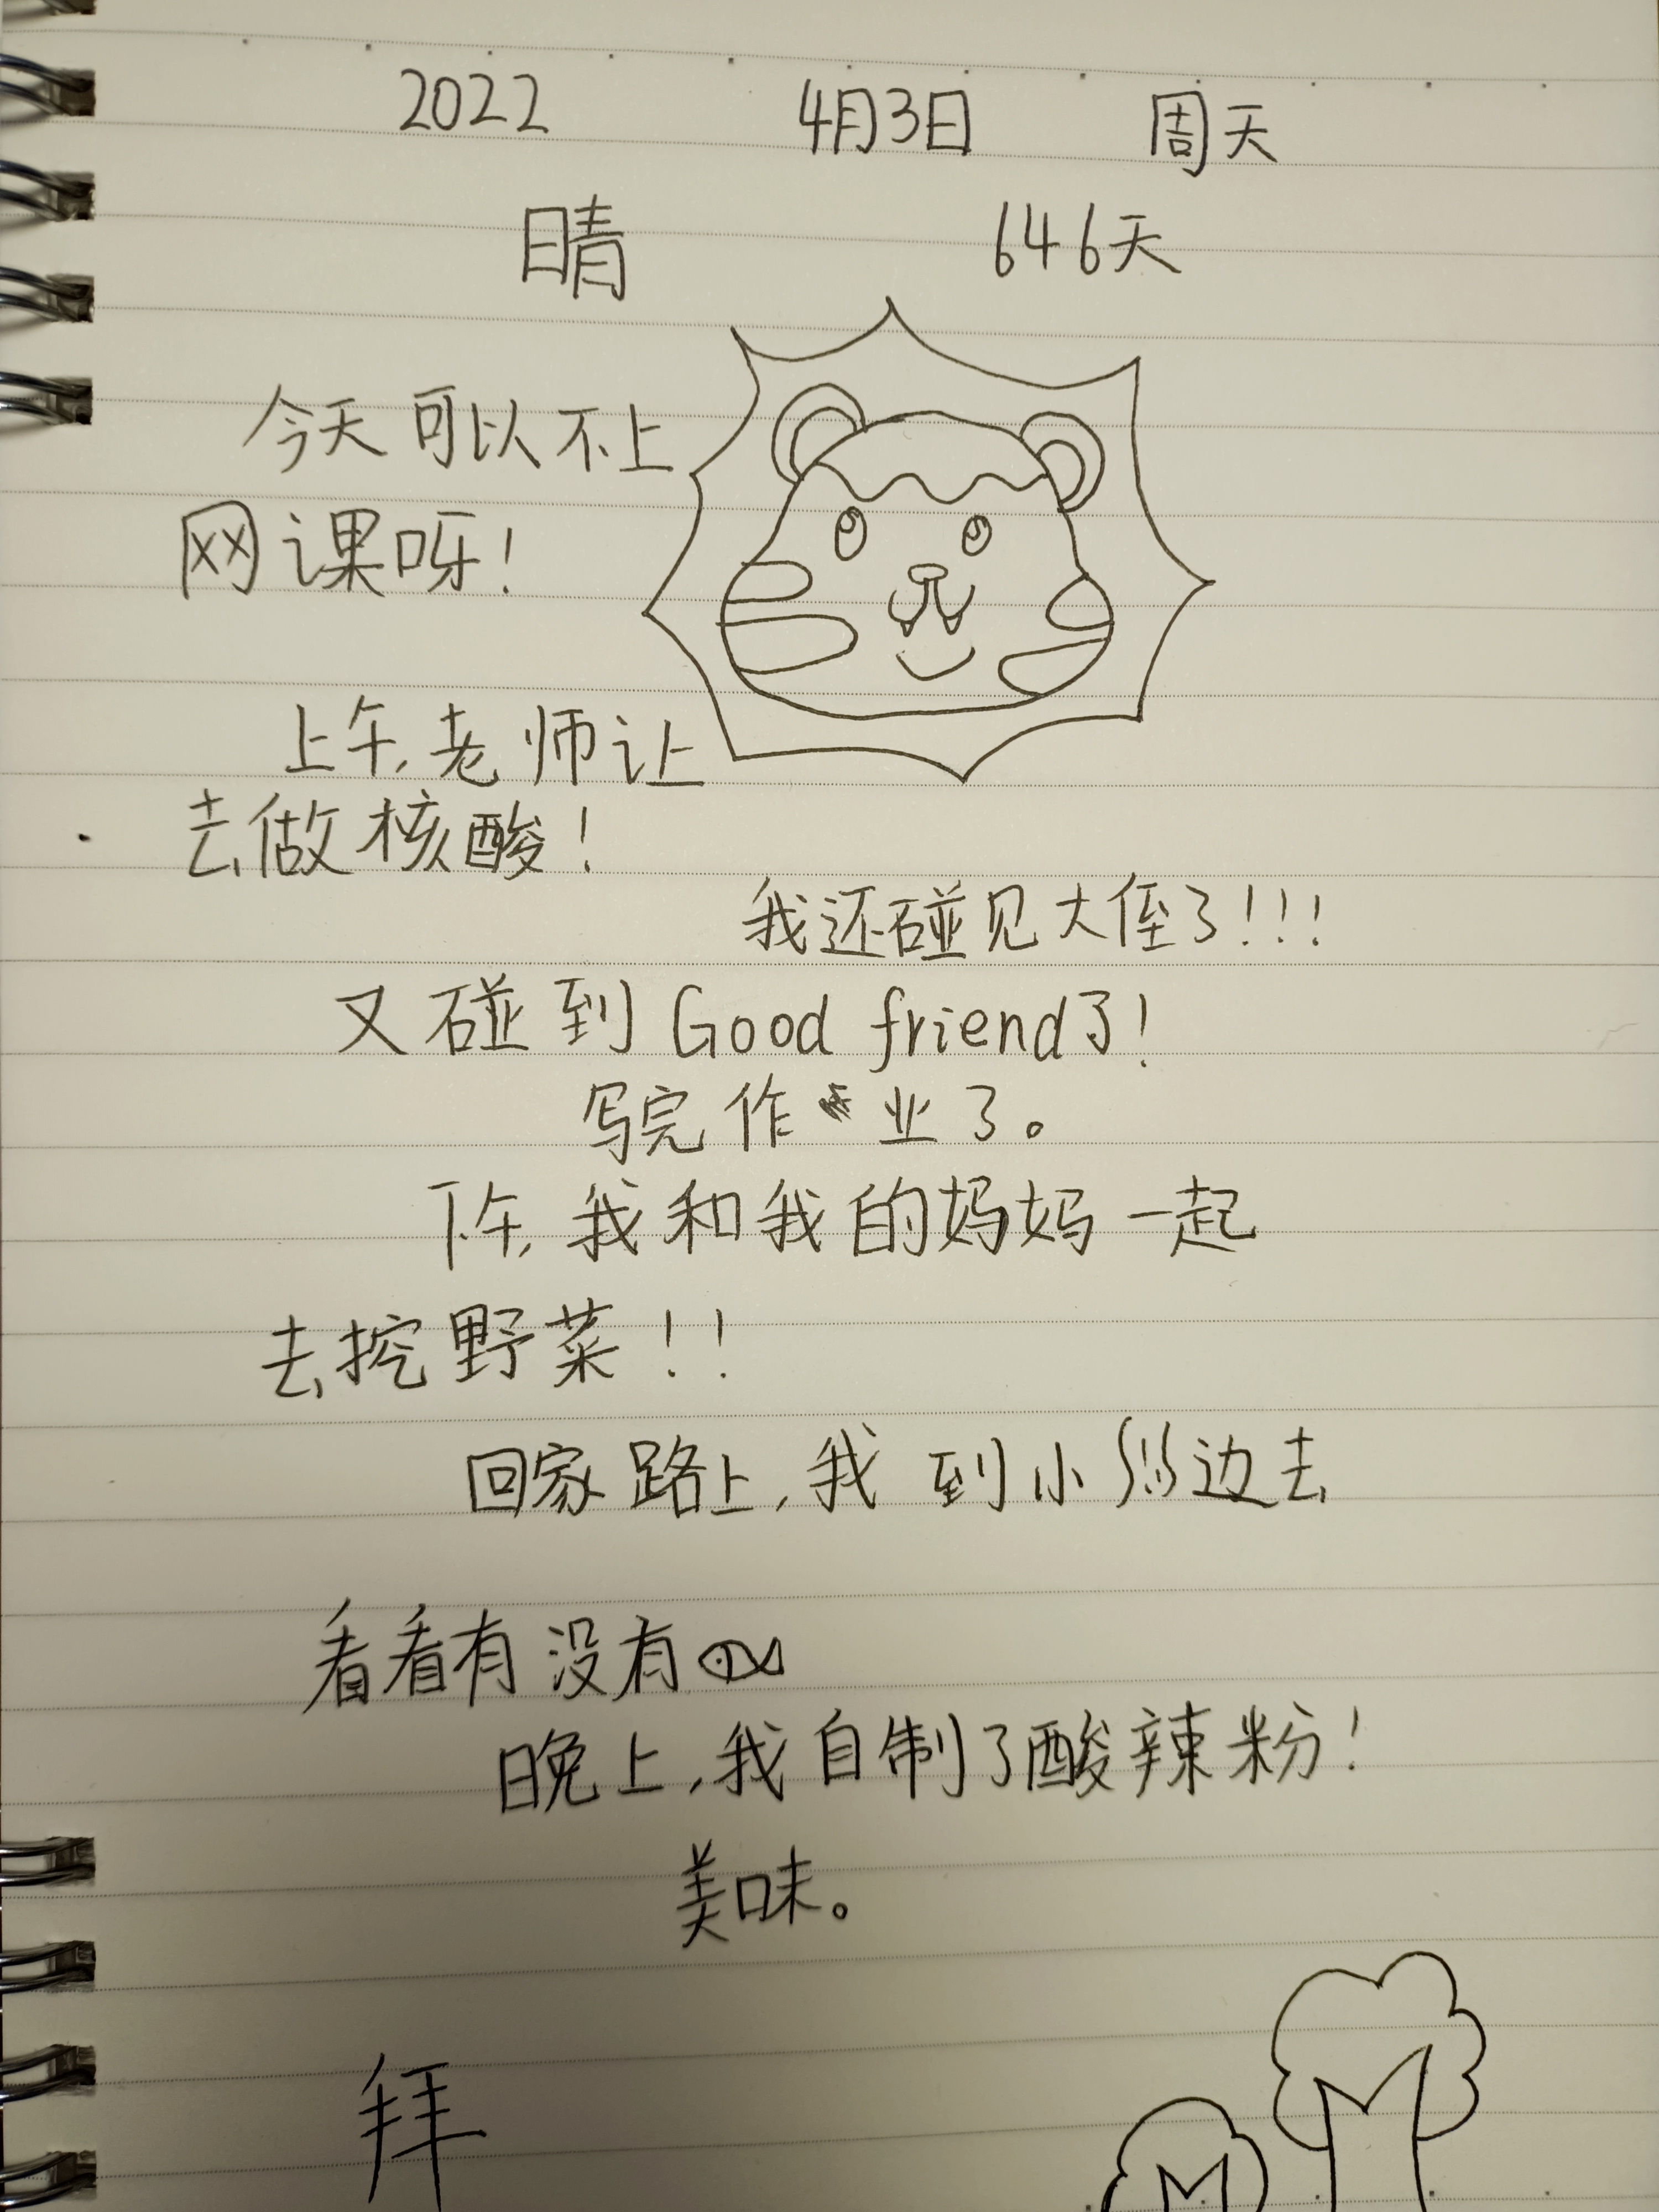 2022 4月3日 周天
晴 646天
今天可以不上
网课呀!
上午,老师让
去做核酸!
我还碰见大侄了!!!
又碰到Good friend了!
写完作业了。
下午,我和我的妈妈一起
去挖野菜!!
回家路上,我到小边去
看看有没有
晚上,我自制了酸辣粉!
美味。
拜